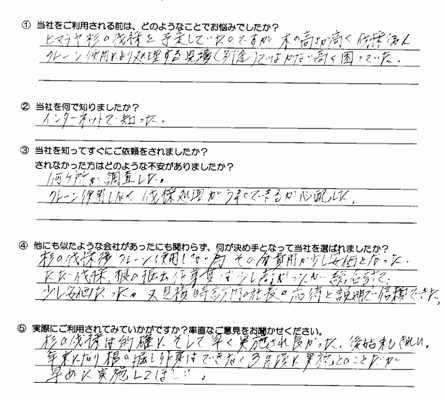 ① 当社をご利用される前は、どのようなことでお悩みでしたか?
ヒマラヤ杉の伐採を予定していたのですが 木の高さが高く 伐採後
クレーン使用により処理する見積(別途)ではかなり高く困っていた。
② 当社を何で知りましたか?
インターネットで知った。
③ 当社を知ってすぐにご依頼をされましたか?
されなかった方はどのような不安がありましたか?
何ヶ所か調査した。
クレーン使用しなく 伐採処理がうまくできるか心配した。
④ 他にも似たような会社があったにも関わらず、何が決め手となって当社を選ばれましたか?
杉の伐採後クレーン使用しない為 その分費用が少し安価となった。
ただ伐採、根の抜出作業費は少し高かったが 総合的で
少し安価だった。又見積時訪問の社長の応待と説明で信頼できた。
⑤ 実際にご利用されてみていかがですか?率直なご意見をお聞かせください。
杉の伐採は的確に、そして早く実施され良かった。後始末もきれい。
年末になり根の堀り作業はできなく3月頃に実施とのことだが
早めに実施してほしい。